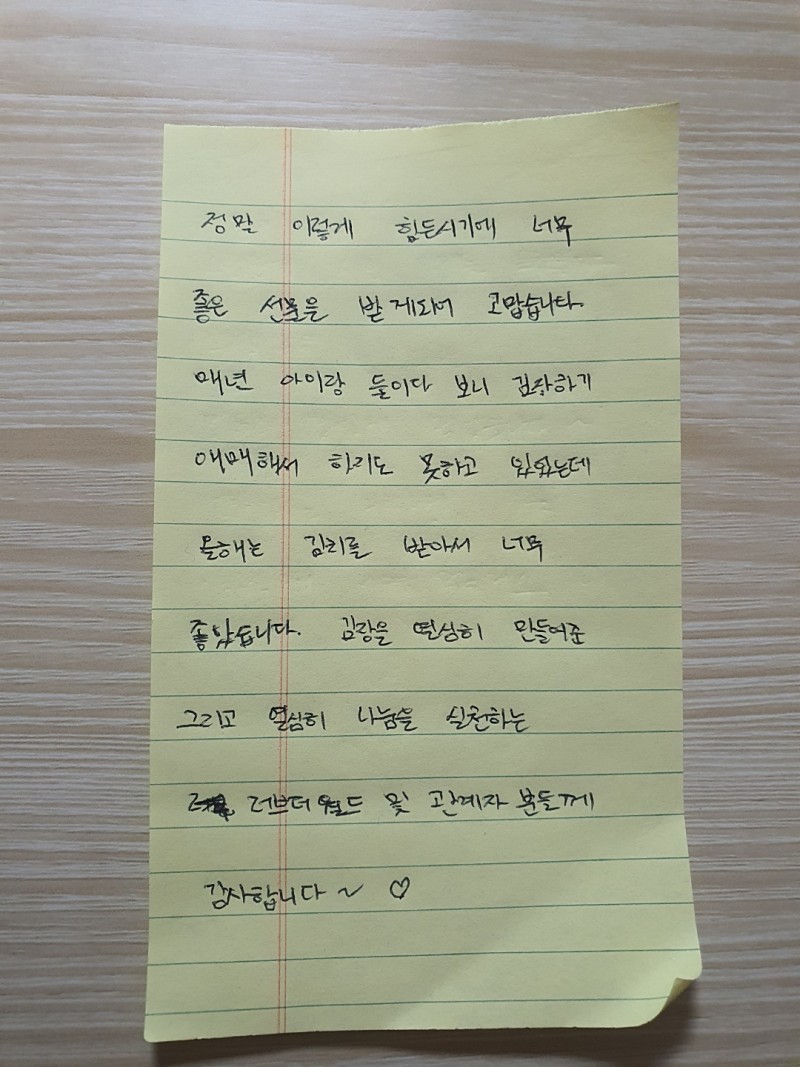 정말 이렇게 힘든시기에 너무
좋은 선물을 받게되어 고맙습니다.
매년 아이랑 둘이다 보니 김장하기
애매해서 하지도 못하고 있었는데
올해는 김치를 받아서 너무
좋았습니다. 김장을 열심히 만들어준
그리고 열심히 나눔을 실천하는
러브더월드 및 관계자 분들께
감사합니다 ~ ♡